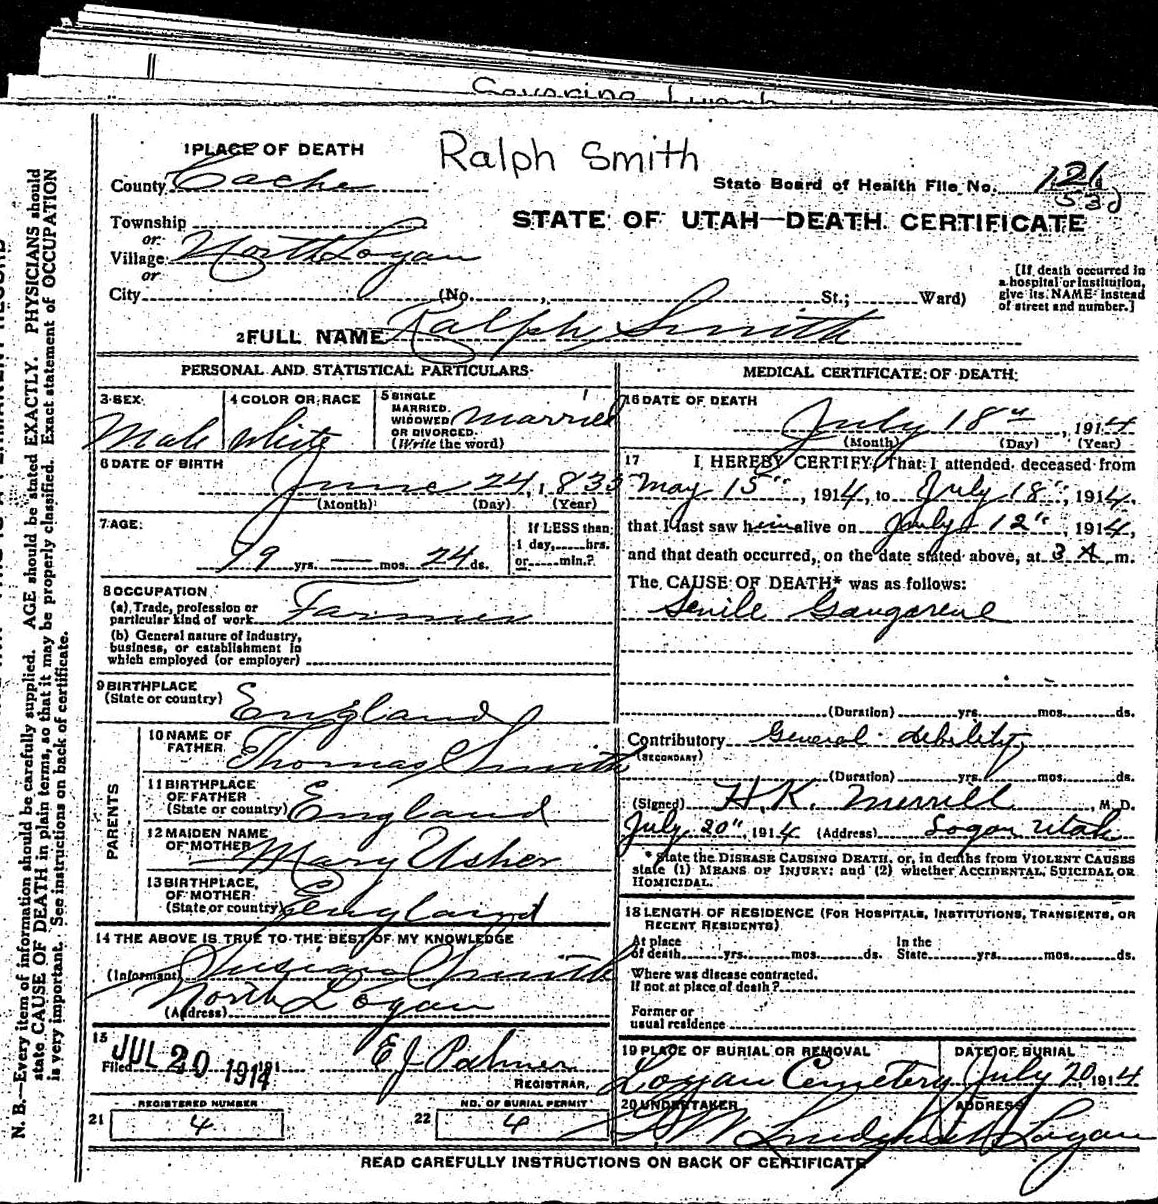 Ralph Smith
1 PLACE OF DEATH
County Cache
State Board of Health File No. 121
530
STATE OF UTAH—DEATH CERTIFICATE
Township
or
Village North Logan
or
City (No. , St.; Ward)
[If death occurred in a hospital or institution, give its NAME instead of street and number.]
2 FULL NAME Ralph Smith
PERSONAL AND STATISTICAL PARTICULARS
3 SEX Male
4 COLOR OR RACE White
5 SINGLE MARRIED, WIDOWED OR DIVORCED. (Write the word) Married
6 DATE OF BIRTH June 24, 1835
(Month) (Day) (Year)
7 AGE: 79 yrs. — mos. 24 ds.
If LESS than 1 day, hrs. or min.?
8 OCCUPATION
(a) Trade, profession or particular kind of work Farmer
(b) General nature of industry, business, or establishment in which employed (or employer)
9 BIRTHPLACE (State or country) England
PARENTS
10 NAME OF FATHER Thomas Smith
11 BIRTHPLACE OF FATHER (State or country) England
12 MAIDEN NAME OF MOTHER Mary Usher
13 BIRTHPLACE OF MOTHER (State or country) England
14 THE ABOVE IS TRUE TO THE BEST OF MY KNOWLEDGE
(Informant) Smith
(Address) North Logan
15 Filed JUL 20 1914 E J Palmer
REGISTRAR,
21 REGISTERED NUMBER 4
22 NO. OF BURIAL PERMIT 4
MEDICAL CERTIFICATE OF DEATH
16 DATE OF DEATH
July 18", 1914
(Month) (Day) (Year)
17 I HEREBY CERTIFY, That I attended deceased from
May 15", 1914, to July 18", 1914,
that I last saw him alive on July 12", 1914,
and that death occurred, on the date stated above, at 3 A m.
The CAUSE OF DEATH* was as follows:
Senile Gangarene
(Duration) yrs. mos. ds.
Contributory General debility
(SECONDARY)
(Duration) yrs. mos. ds.
(Signed) H.K. Merrill, M. D.
July 20", 1914 (Address) Logan Utah
* State the DISEASE CAUSING DEATH, or, in deaths from VIOLENT CAUSES
state (1) MEANS OF INJURY; and (2) whether ACCIDENTAL, SUICIDAL OR
HOMICIDAL.
18 LENGTH OF RESIDENCE (FOR HOSPITALS, INSTITUTIONS, TRANSIENTS, OR
RECENT RESIDENTS)
At place of death yrs. mos. ds. In the State yrs. mos. ds.
Where was disease contracted,
If not at place of death?
Former or
usual residence
19 PLACE OF BURIAL OR REMOVAL Logan Cemetery
DATE OF BURIAL July 20, 1914
20 UNDERTAKER
ADDRESS Logan
READ CAREFULLY INSTRUCTIONS ON BACK OF CERTIFICATE
N. B.—Every item of information should be carefully supplied. AGE should be stated EXACTLY. PHYSICIANS should
state CAUSE OF DEATH in plain terms, so that it may be properly classified. Exact statement of OCCUPATION
is very important. See instructions on back of certificate.